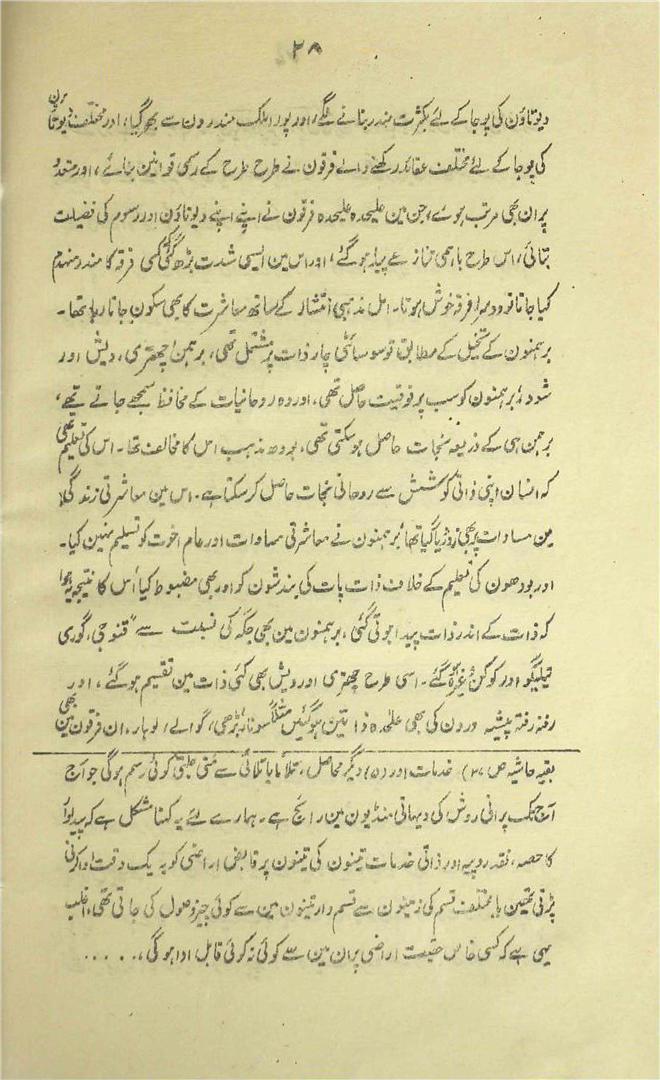 ۲۸
دیوتاؤن کی پوجا کے لئے بکثرت مندر بنانے لگے، اور پورا ملک مندرون سے بھر گیا، اور مختلف دیوتاؤن
کی پوجا کے لئے مختلف عقائد رکھنے والے فرقون نے طرح طرح کے رسمی قوانین بنائے، اور متعدد
پران بھی مرتب ہوئے، جن مین علیحدہ علیحدہ فرقون نے اپنے اپنے دیوتاؤن اور رسوم کی فضیلت
بتائی، اس طرح باہمی تنازعے پیدا ہو گئے، اور اس مین ایسی شدت بڑھ گئی کہ کسی فرقہ کا مندر منہدم
کیا جاتا تو دوسرا فرقہ خوش ہوتا۔ اس مذہبی انتشار کے ساتھ معاشرت کا بھی سکون جاتا رہا تھا۔
برہمنون کے تخیل کے مطابق تو سوسائٹی چار ذات پر مشتمل تھی، برہمن، چھتری، ویش اور
شودر، برہمنون کو سب پر فوقیت حاصل تھی، اور وہ روحانیات کے محافظ سمجھے جاتے تھے،
برہمن ہی کے ذریعہ نجات حاصل ہو سکتی تھی، بودھ مذہب اس کا مخالف تھا۔ اس کی تعلیم تھی
کہ انسان اپنی ذاتی کوشش سے روحانی نجات حاصل کر سکتا ہے۔ اس مین معاشرتی زندگی
مین مساوات پر بھی زور دیا گیا تھا، برہمنون نے معاشرتی مساوات اور عام اخوت کو تسلیم نہین کیا۔
اور بودھون کی تعلیم کے خلاف ذات پات کی بندشون کو اور بھی مضبوط کیا، اس کا نتیجہ یہ ہوا
کہ ذات کے اندر ذات پیدا ہوتی گئی، برہمنون مین بھی جگہ کی نسبت سے قنوجی، گوری
تیلیگو اور کوکن وغیرہ ہو گئے۔ اسی طرح چھتری اور ویش بھی کئی ذات مین تقسیم ہو گئے، اور
رفتہ رفتہ پیشہ ورون کی بھی علٰحدہ ذاتین ہو گئین مثلاً سونار، بڑھی، گوالے، لوہار، ان فرقون مین بھی
بقیہ حاشیہ ص ۲۷) خدمات اور (۵) دیگر محاصل، تلا یا تلائی سے متعلق کوئی رسم ہو گی جو آج
آج تک پرانی روش کی دیہاتی منڈیون مین رائج ہے۔ ہمارے لئے یہ کہنا مشکل ہے کہ پیداوار
کا حصہ، نقد روپیہ اور ذاتی خدمات تینون کی تینون ہر قابض اراضی کو بہ یک وقت ادا کرنی
پڑتی تھین یا مختلف قسم کی زمینون سے قسم وار تینون مین سے کوئی چیز وصول کی جاتی تھی، اغلب
یہی ہے کہ کسی خاص حقیت اراضی پر ان مین سے کوئی نہ کوئی قابل ادا ہو گی، .....